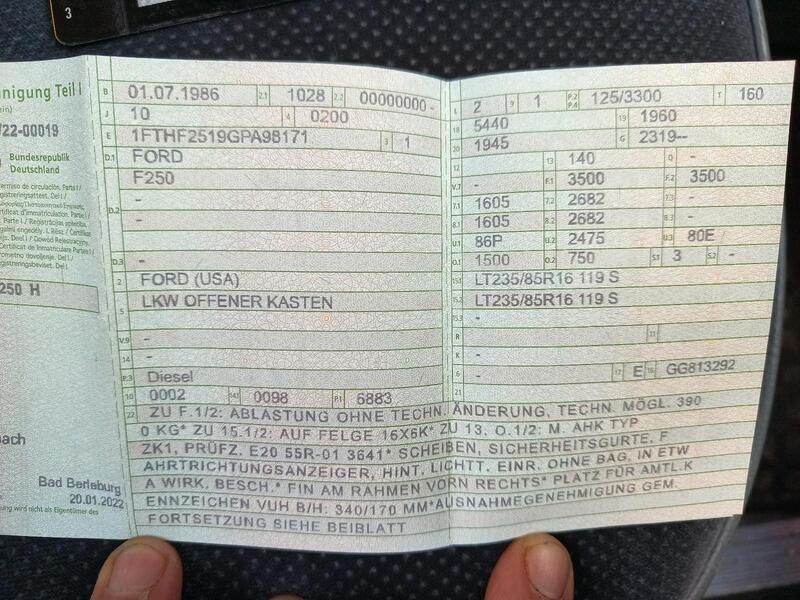 3
nigung Teil I
in)
/22-00019
Bundesrepublik
Deutschland
250 H
bach
Bad Berleburg
20.01.2022
B 01.07.1986 2.1 1028 2.2 00000000 -
J 10 4 0200
E 1FTHF2519GPA98171 3 1
D.1 FORD
F250
D.2 -
-
D.3 -
2 FORD (USA)
5 LKW OFFENER KASTEN
V.9 -
14 -
P.3 Diesel
10 0002 14.1 0098 P.1 6883
L 2 9 1 P.2 P.4 125/3300 T 160
18 5440 19 1960
20 1945 G 2319--
12 - 13 140 Q -
V.7 - F.1 3500 F.2 3500
7.1 1605 7.2 2682 7.3 -
8.1 1605 8.2 2682 8.3 -
U.1 86P U.2 2475 U.3 80E
O.1 1500 O.2 750 S.1 3 S.2 -
15.1 LT235/85R16 119 S
15.2 LT235/85R16 119 S
15.3 -
R - 11
K -
6 - 17 E 16 GG813292
21
22 ZU F.1/2: ABLASTUNG OHNE TECHN. ÄNDERUNG, TECHN. MÖGL. 390
0 KG* ZU 15.1/2: AUF FELGE 16X6K* ZU 13, O.1/2: M. AHK TYP
ZK1, PRÜFZ. E20 55R-01 3641* SCHEIBEN, SICHERHEITSGURTE, F
AHRTRICHTUNGSANZEIGER, HINT. LICHTT. EINR. OHNE BAG, IN ETW
A WIRK, BESCH.* FIN AM RAHMEN VORN RECHTS* PLATZ FÜR AMTL.K
ENNZEICHEN VUH B/H: 340/170 MM*AUSNAHMEGENEHMIGUNG GEM.
FORTSETZUNG SIEHE BEIBLATT